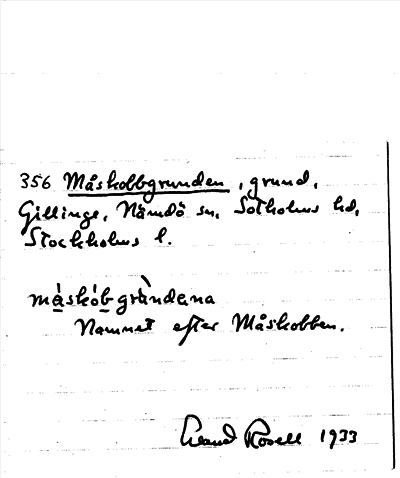 356 Måskobbgrunden, grund,
Gillinge, Nämdö sn, Sotholms hd,
Stockholms l.
måskòbgrùndana
Namnet efter Måskobben.
Erland Rosell 1933